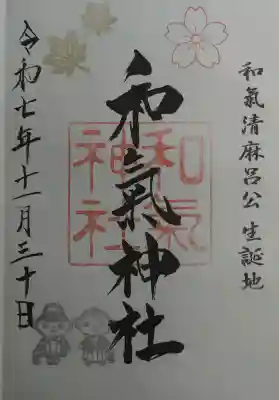 和氣清麻呂公 生誕地
和氣神社
和氣神社
令和七年十一月三十日